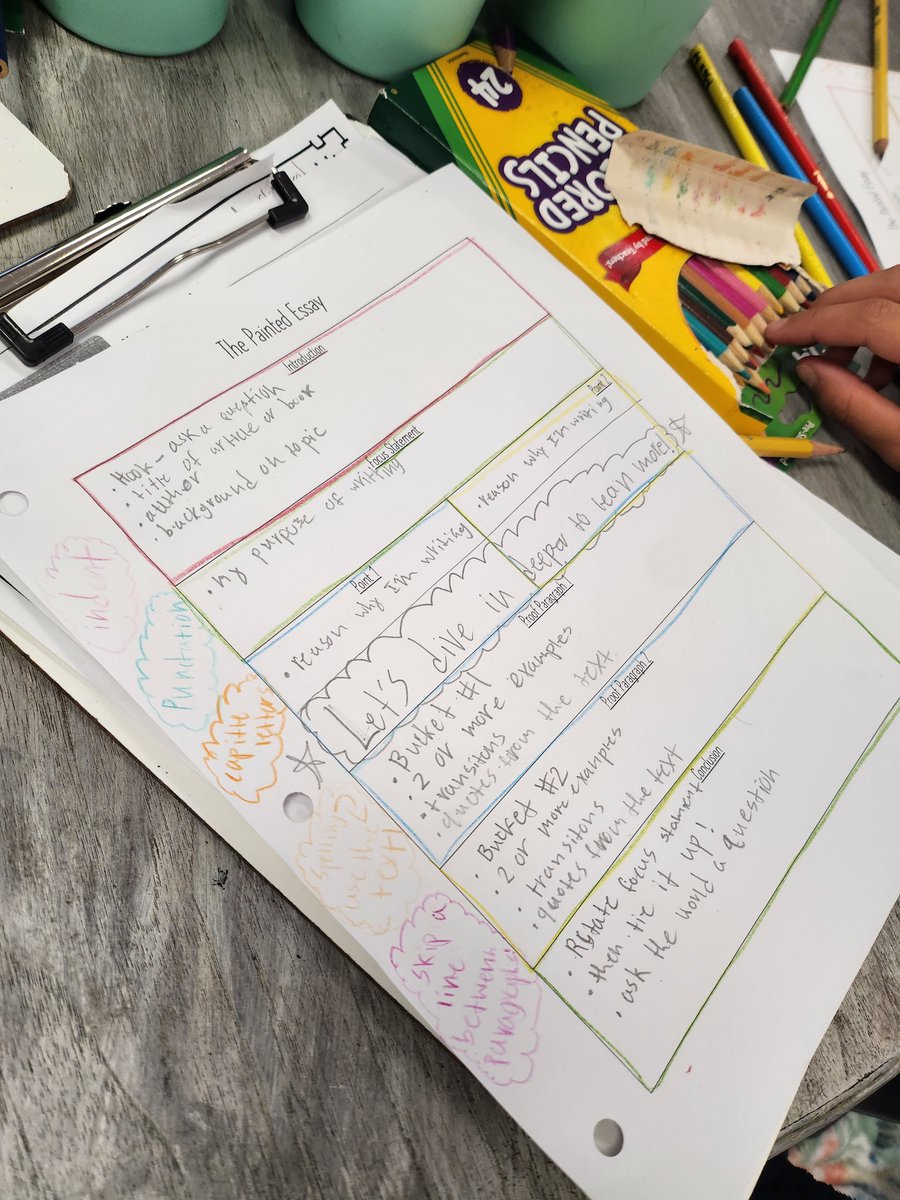 24
COLORED
PENCILS
The Painted Essay
Introduction
• Hook - ask a question
• title of article or book
• author
• background on topic
Focus Statement
• my purpose of writting
Point 1
• reason why I'm writing
Point 2
• reason why I'm writing
Let's dive in deeper to learn more!
Proof Paragraph 1
• Bucket #1
• 2 or more examples
• transitons
• quotes from the text.
Proof Paragraph 2
• Bucket #2
• 2 or more examples
• transitons
• quotes from the text
Conclusion
• Restate focus stament
• then tie it up!
• ask the world a question
indent
Puntation
capitle
letters
spelling
use the
text!
skip a
line
between
paragraphs